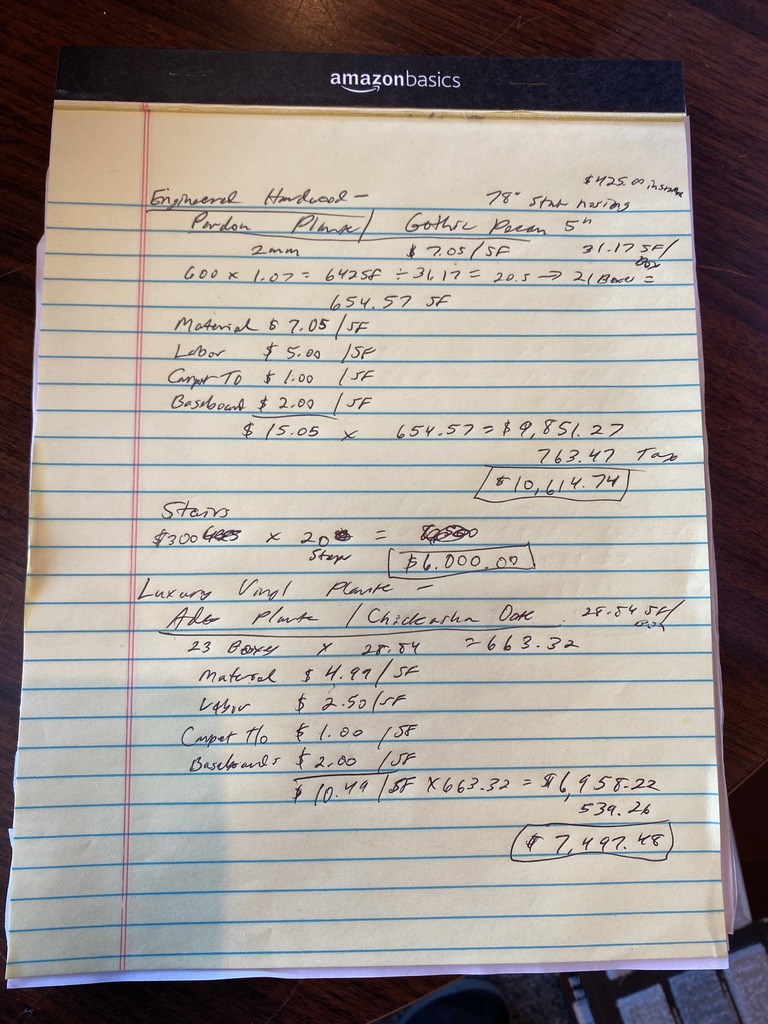 amazonbasics
$425.00 installed
Engineered Hardwood - 78" Stair nosing
Pardon Planx / Gothic Pecan 5"
2mm $7.05/SF 31.17 SF/Box
600 x 1.07 = 642SF ÷ 31.17 = 20.5 → 21 Boxes =
654.57 SF
Material $7.05/SF
Labor $5.00 /SF
Carpet TO $1.00 /SF
Baseboard $2.00 /SF
$15.05 x 654.57 = $9,851.27
763.47 Tax
$10,614.74
Stairs
$300 x 20 =
Steps $6,000.00
Luxury Vinyl Plank -
Plank / Chickasha Oak 28.84 SF/Box
23 Boxes x 28.84 = 663.32
Material $4.99/SF
Labor $2.50/SF
Carpet T/o $1.00 /SF
Baseboards $2.00 /SF
$10.49 /SF x 663.32 = $6,958.22
539.26
$7,497.48